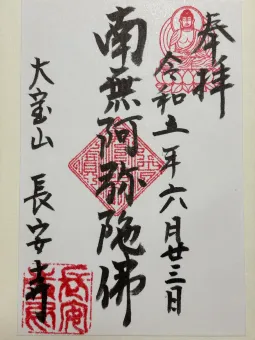 奉拝
令和五年六月廿三日
南無阿弥陀佛
大宝山 長安寺
長安寺印